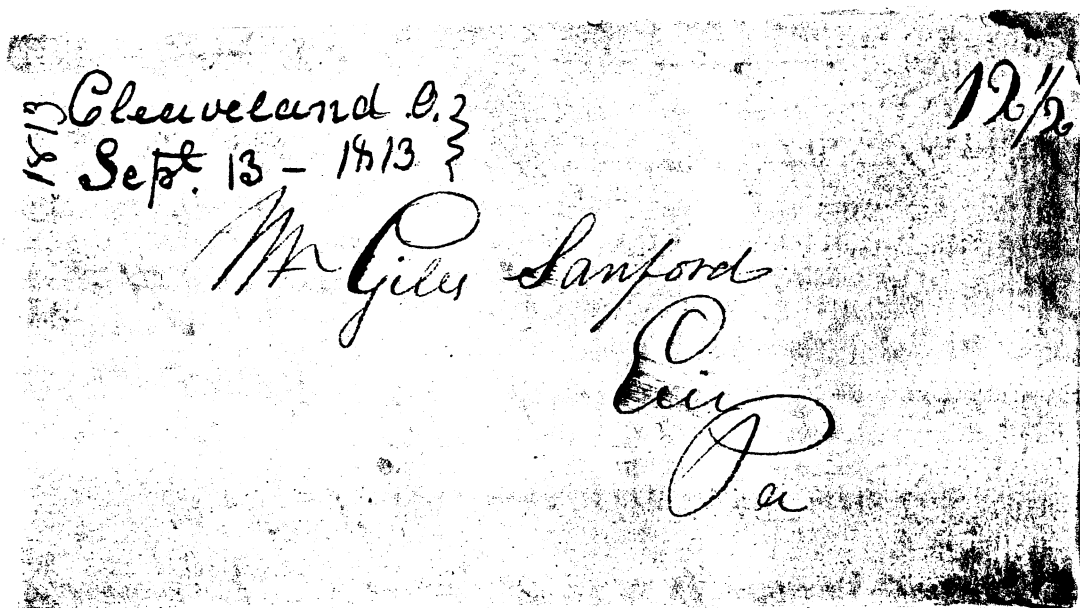 Cleaveland O.
Sept. 13 - 1813
1813
12 1/2
Mr Giles Sanford
Erie
Pa